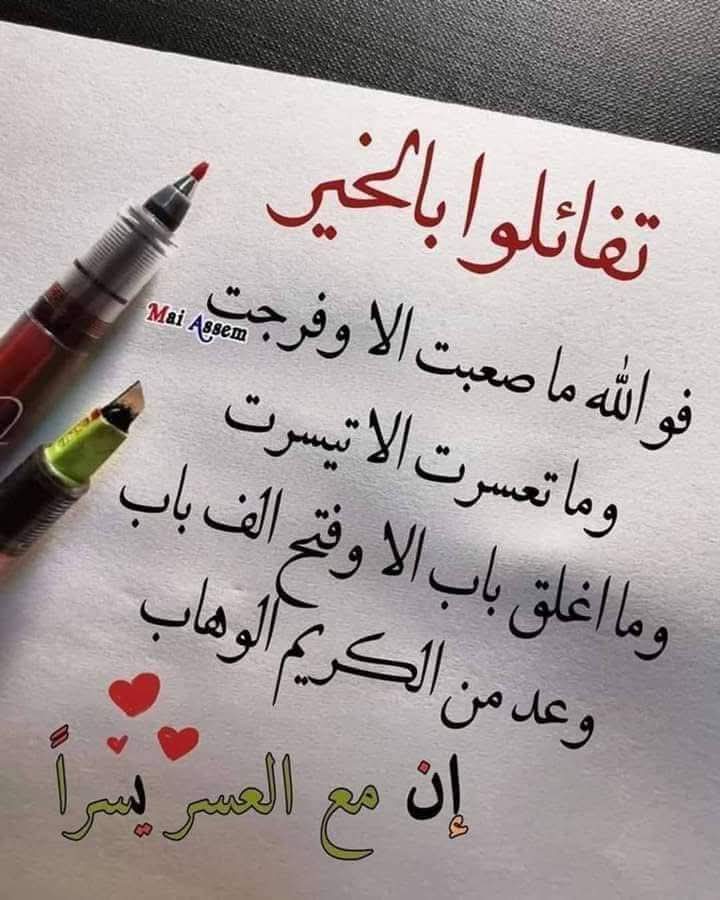 تفائلوا بالخير
فوالله ما صعبت الا وفرجت
Mai Assem
وما تعسرت الا تيسرت
وما اغلق باب الا وفتح الف باب
وعد من الكريم الوهاب
إن مع العسر يسراً